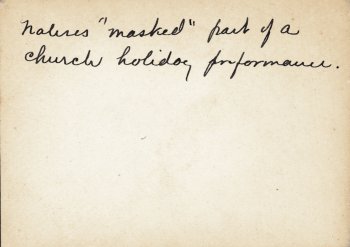 Natives "masked" part of a
church holiday performance.